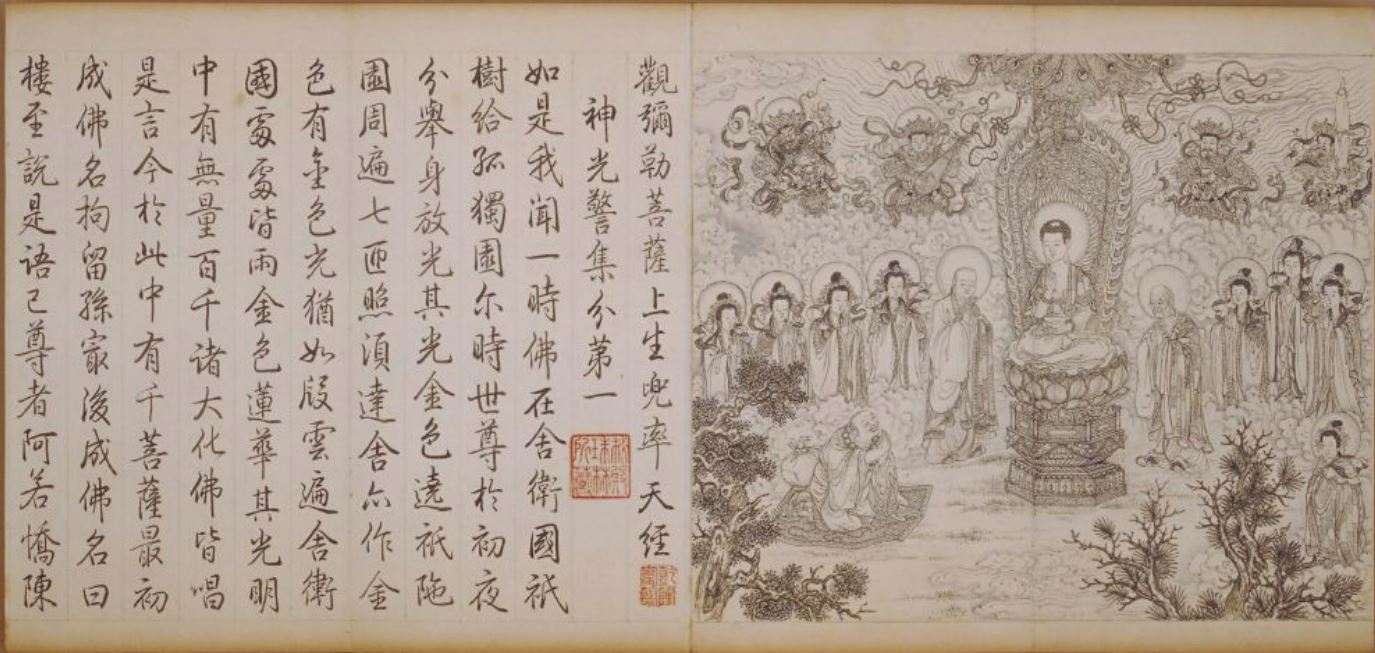 觀彌勒菩薩上生兜率天經
神光警集分第一
如是我聞一時佛在舍衛國祇
樹給孤獨園尒時世尊於初夜
分舉身放光其光金色遶祇陁
園周遍七匝照湏達舍亦作金
色有金色光猶如段雲遍舍衛
國處處皆雨金色蓮華其光明
中有無量百千诸大化佛皆唱
是言今於此中有千菩薩最初
成佛名拘留孫㝡後成佛名曰
樓至說是语已尊者阿若憍陳